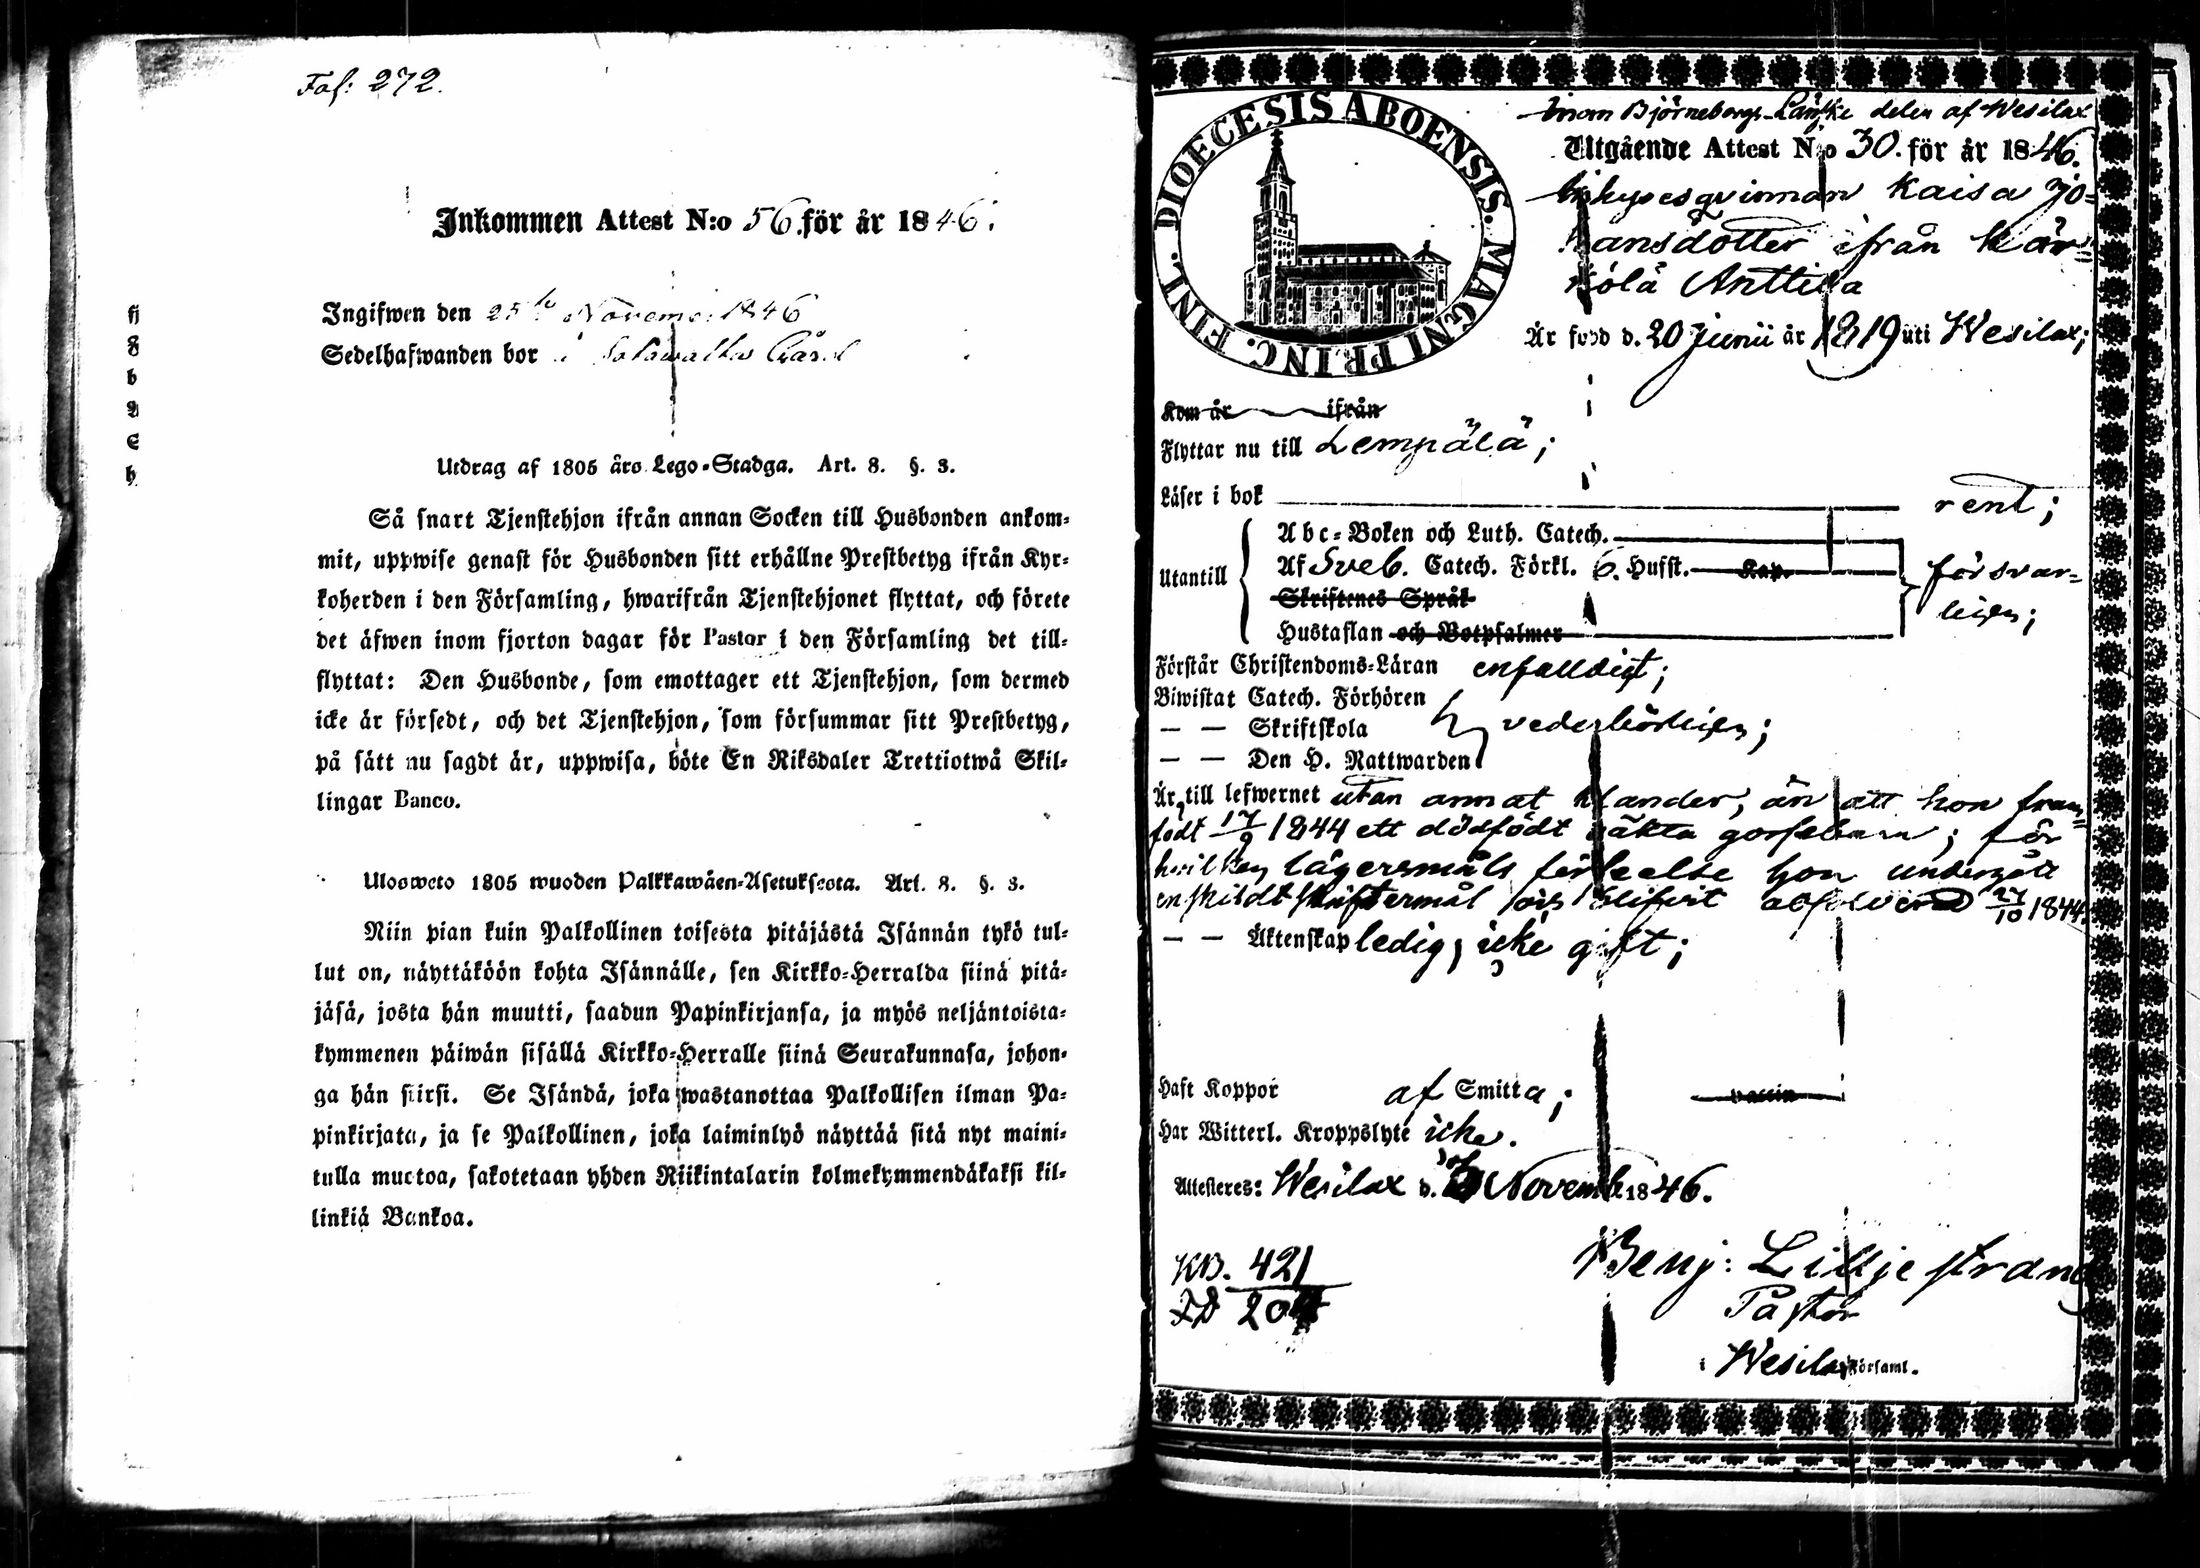 Fol: 272.
Inkommen Attest N:o 56. för år 1846.
Ingifwen den 25 Novemb. 1846
Sedelhafwanden bor i Gård
Utdrag af 1805 års Lego-Stadga. Art. 8. §. 3.
Så snart Tjenstehjon ifrån annan Socken till Husbonden ankom-
mit, uppwise genast för Husbonden sitt erhållne Prestbetyg ifrån Kyr-
koherden i den Församling, hwarifrån Tjenstehjonet flyttat, och förete
det äfwen inom fjorton dagar för Pastor i den Församling det till-
flyttat: Den Husbonde, som emottager ett Tjenstehjon, som dermed
icke är försedt, och det Tjenstehjon, som försummar sitt Prestbetyg,
på sätt nu sagdt är, uppwisa, böte En Riksdaler Trettiotwå Skil-
lingar Banco.
Ulosweto 1805 wuoden Palkkawäen-Asetuksesta. Art. 8. §. 3.
Niin pian kuin Palkollinen toisesta pitäjästä Isännän tykö tul-
lut on, näyttäköön kohta Isännälle, sen Kirkko-Herralda siinä pitä-
jäsä, josta hän muutti, saadun Papinkirjansa, ja myös neljäntoista-
kymmenen päiwän sisällä Kirkko-Herralle siinä Seurakunnasa, johon-
ga hän siirsi. Se Isändä, joka wastanottaa Palkollisen ilman Pa-
pinkirjata, ja se Palkollinen, joka laiminlyö näyttää sitä nyt maini-
tulla muotoa, sakotetaan yhden Riikintalarin kolmekymmendäkaksi kil-
linkiä Bankoa.
DIOECESIS ABOENSIS. MAGNI PRINC. FINL.
Inom Björneborgs Länske delen af Wesilax
Utgående Attest N:o 30. för år 1846.
Inhysesqvinnan Kaisa Jo-
hansdotter ifrån Kär-
kölä Anttila
Är född d. 20 Junii år 1819 uti Wesilax;
Kom år ifrån
Flyttar nu till Lempälä;
Läser i bok rent;
Utantill
Abc-Boken och Luth. Catech.
Af Sveb. Catech. Förkl. 6. Hufst. Kap.
försvar-
ligen;
Skriftenes Språk
Hustaflan och Botpsalmer
Förstår Christendoms-Läran enfalldigt;
Biwistat Catech. Förhören
— — Skriftskola vederbörligen;
— — Den H. Nattwarden
Är, till lefwernet utan annat klander, än att hon fram-
födt 17/9 1844 ett dödfödt oäkta gossebarn; för
hvilken lägersmåls förseelse hon undergått
enskildt skriftermål och blifvit absolverad 27/10 1844.
— — Äktenskap ledig, icke gift;
Haft Koppor af Smitta; vaccin
Har Witterl. Kroppslyte icke.
Attesteres: Wesilax d. Novemb. 1846.
KB. 421
204
Benj: Liljestrand
Pastor
i Wesilax Församl.